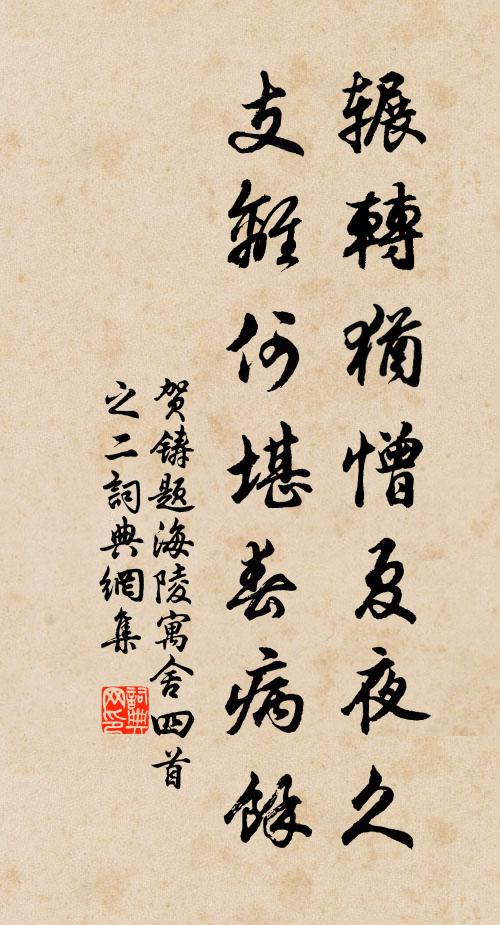 辗轉猶憎夏夜久
支離何堪春病餘
贺鑄题海陵寓舍四首
之二詞典網集
詞典
网印